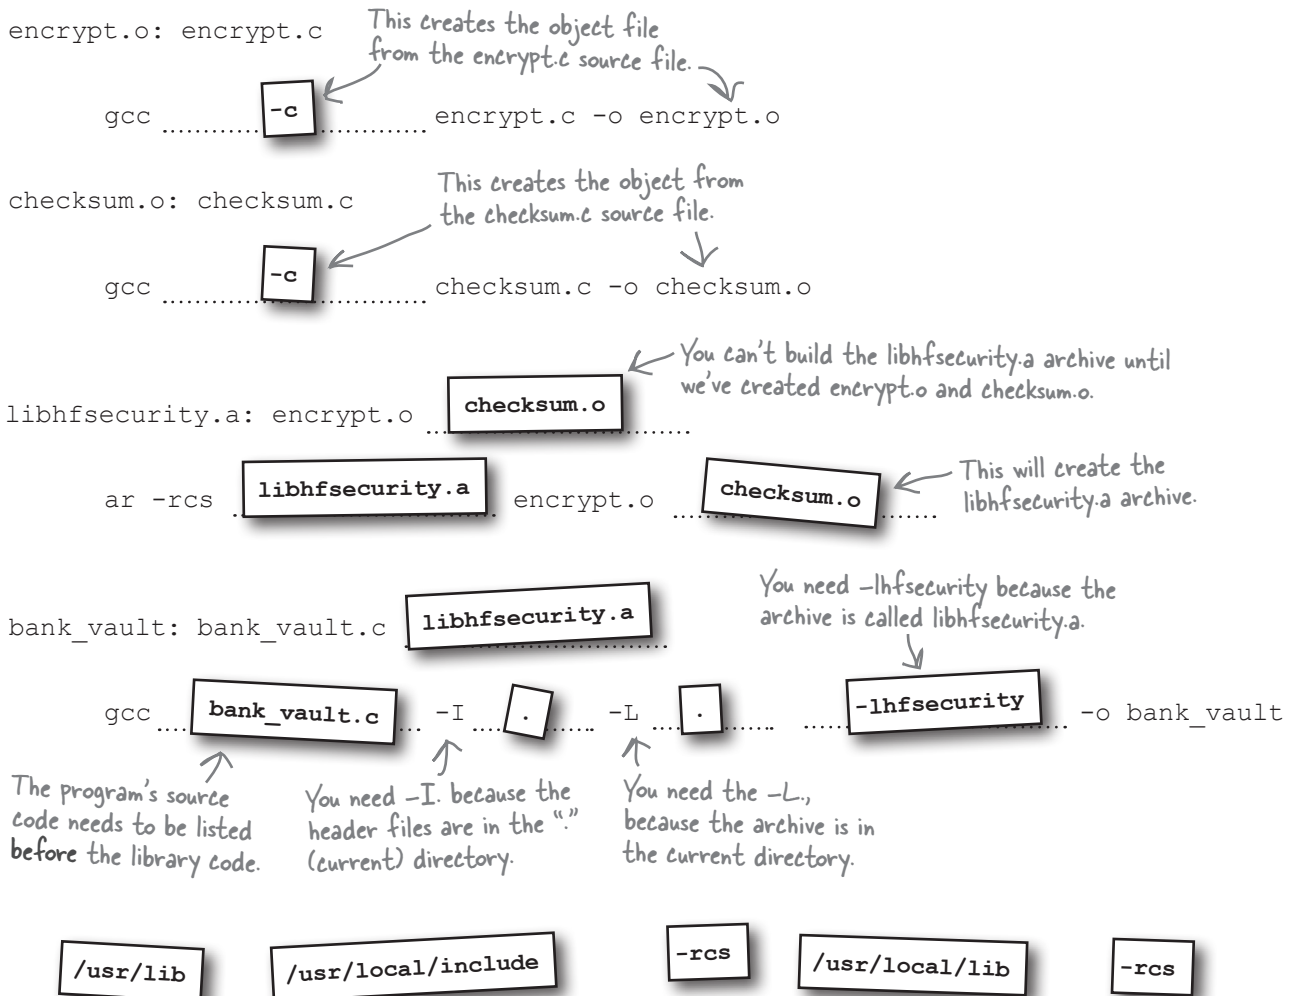 encrypt.o: encrypt.c
This creates the object file
from the encrypt.c source file.
gcc -c encrypt.c -o encrypt.o
checksum.o: checksum.c
This creates the object from
the checksum.c source file.
gcc -c checksum.c -o checksum.o
You can't build the libhfsecurity.a archive until
we've created encrypt.o and checksum.o.
libhfsecurity.a: encrypt.o checksum.o
ar -rcs libhfsecurity.a encrypt.o checksum.o
This will create the
libhfsecurity.a archive.
You need -lhfsecurity because the
archive is called libhfsecurity.a.
bank_vault: bank_vault.c libhfsecurity.a
gcc bank_vault.c -I . -L . -lhfsecurity -o bank_vault
The program's source
code needs to be listed
before the library code.
You need -I. because the
header files are in the "."
(current) directory.
You need the -L.,
because the archive is in
the current directory.
/usr/lib /usr/local/include -rcs /usr/local/lib -rcs